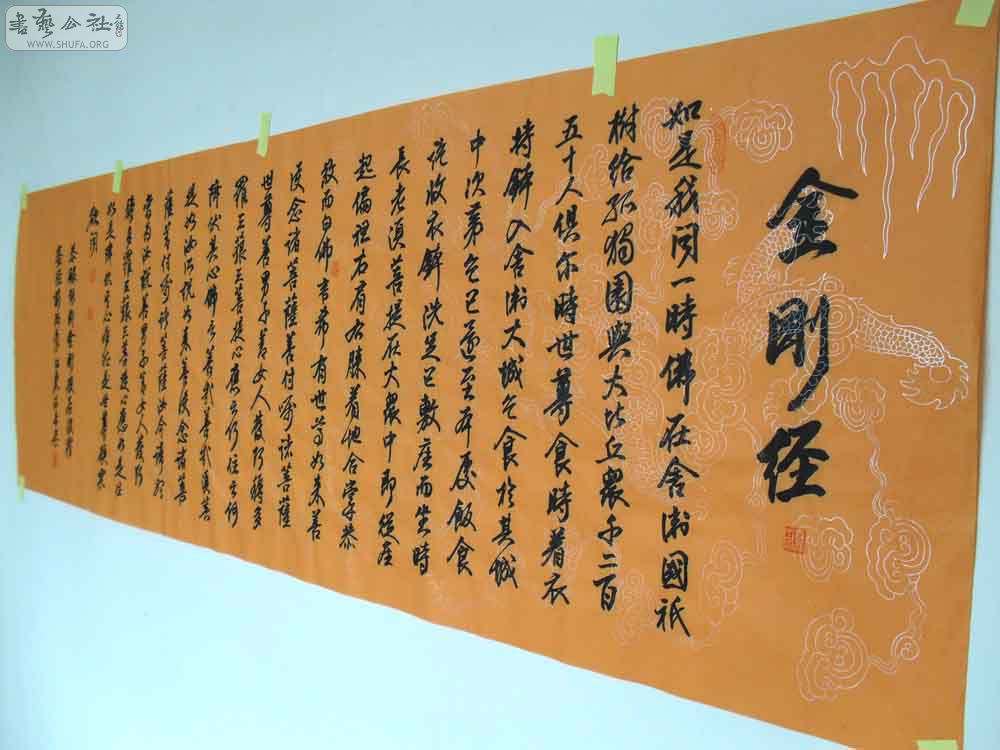 書藝公社
WWW.SHUFA.ORG
金剛经
如是我闻一時佛在舍衛國祇
樹给孤獨園與大比丘眾千二百
五十人俱尔時世尊食時着衣
持鉢入舍衛大城乞食於其城
中次第乞已還至本處飯食
讫收衣鉢洗足已敷座而坐時
長老須菩提在大眾中即從座
起偏袒右肩右膝着地合掌恭
敬而白佛言希有世尊如来善
護念諸菩薩善付嘱諸菩薩
世尊善男子善女人發阿耨多
羅三藐三菩提心應云何住云何
降伏其心佛言善哉善哉須菩
提如汝所說如来善護念諸菩
薩善付嘱諸菩薩汝今諦聽
當為汝說善男子善女人發阿
耨多羅三藐三菩提心應如是住
如是降伏其心唯然世尊願樂
欲聞